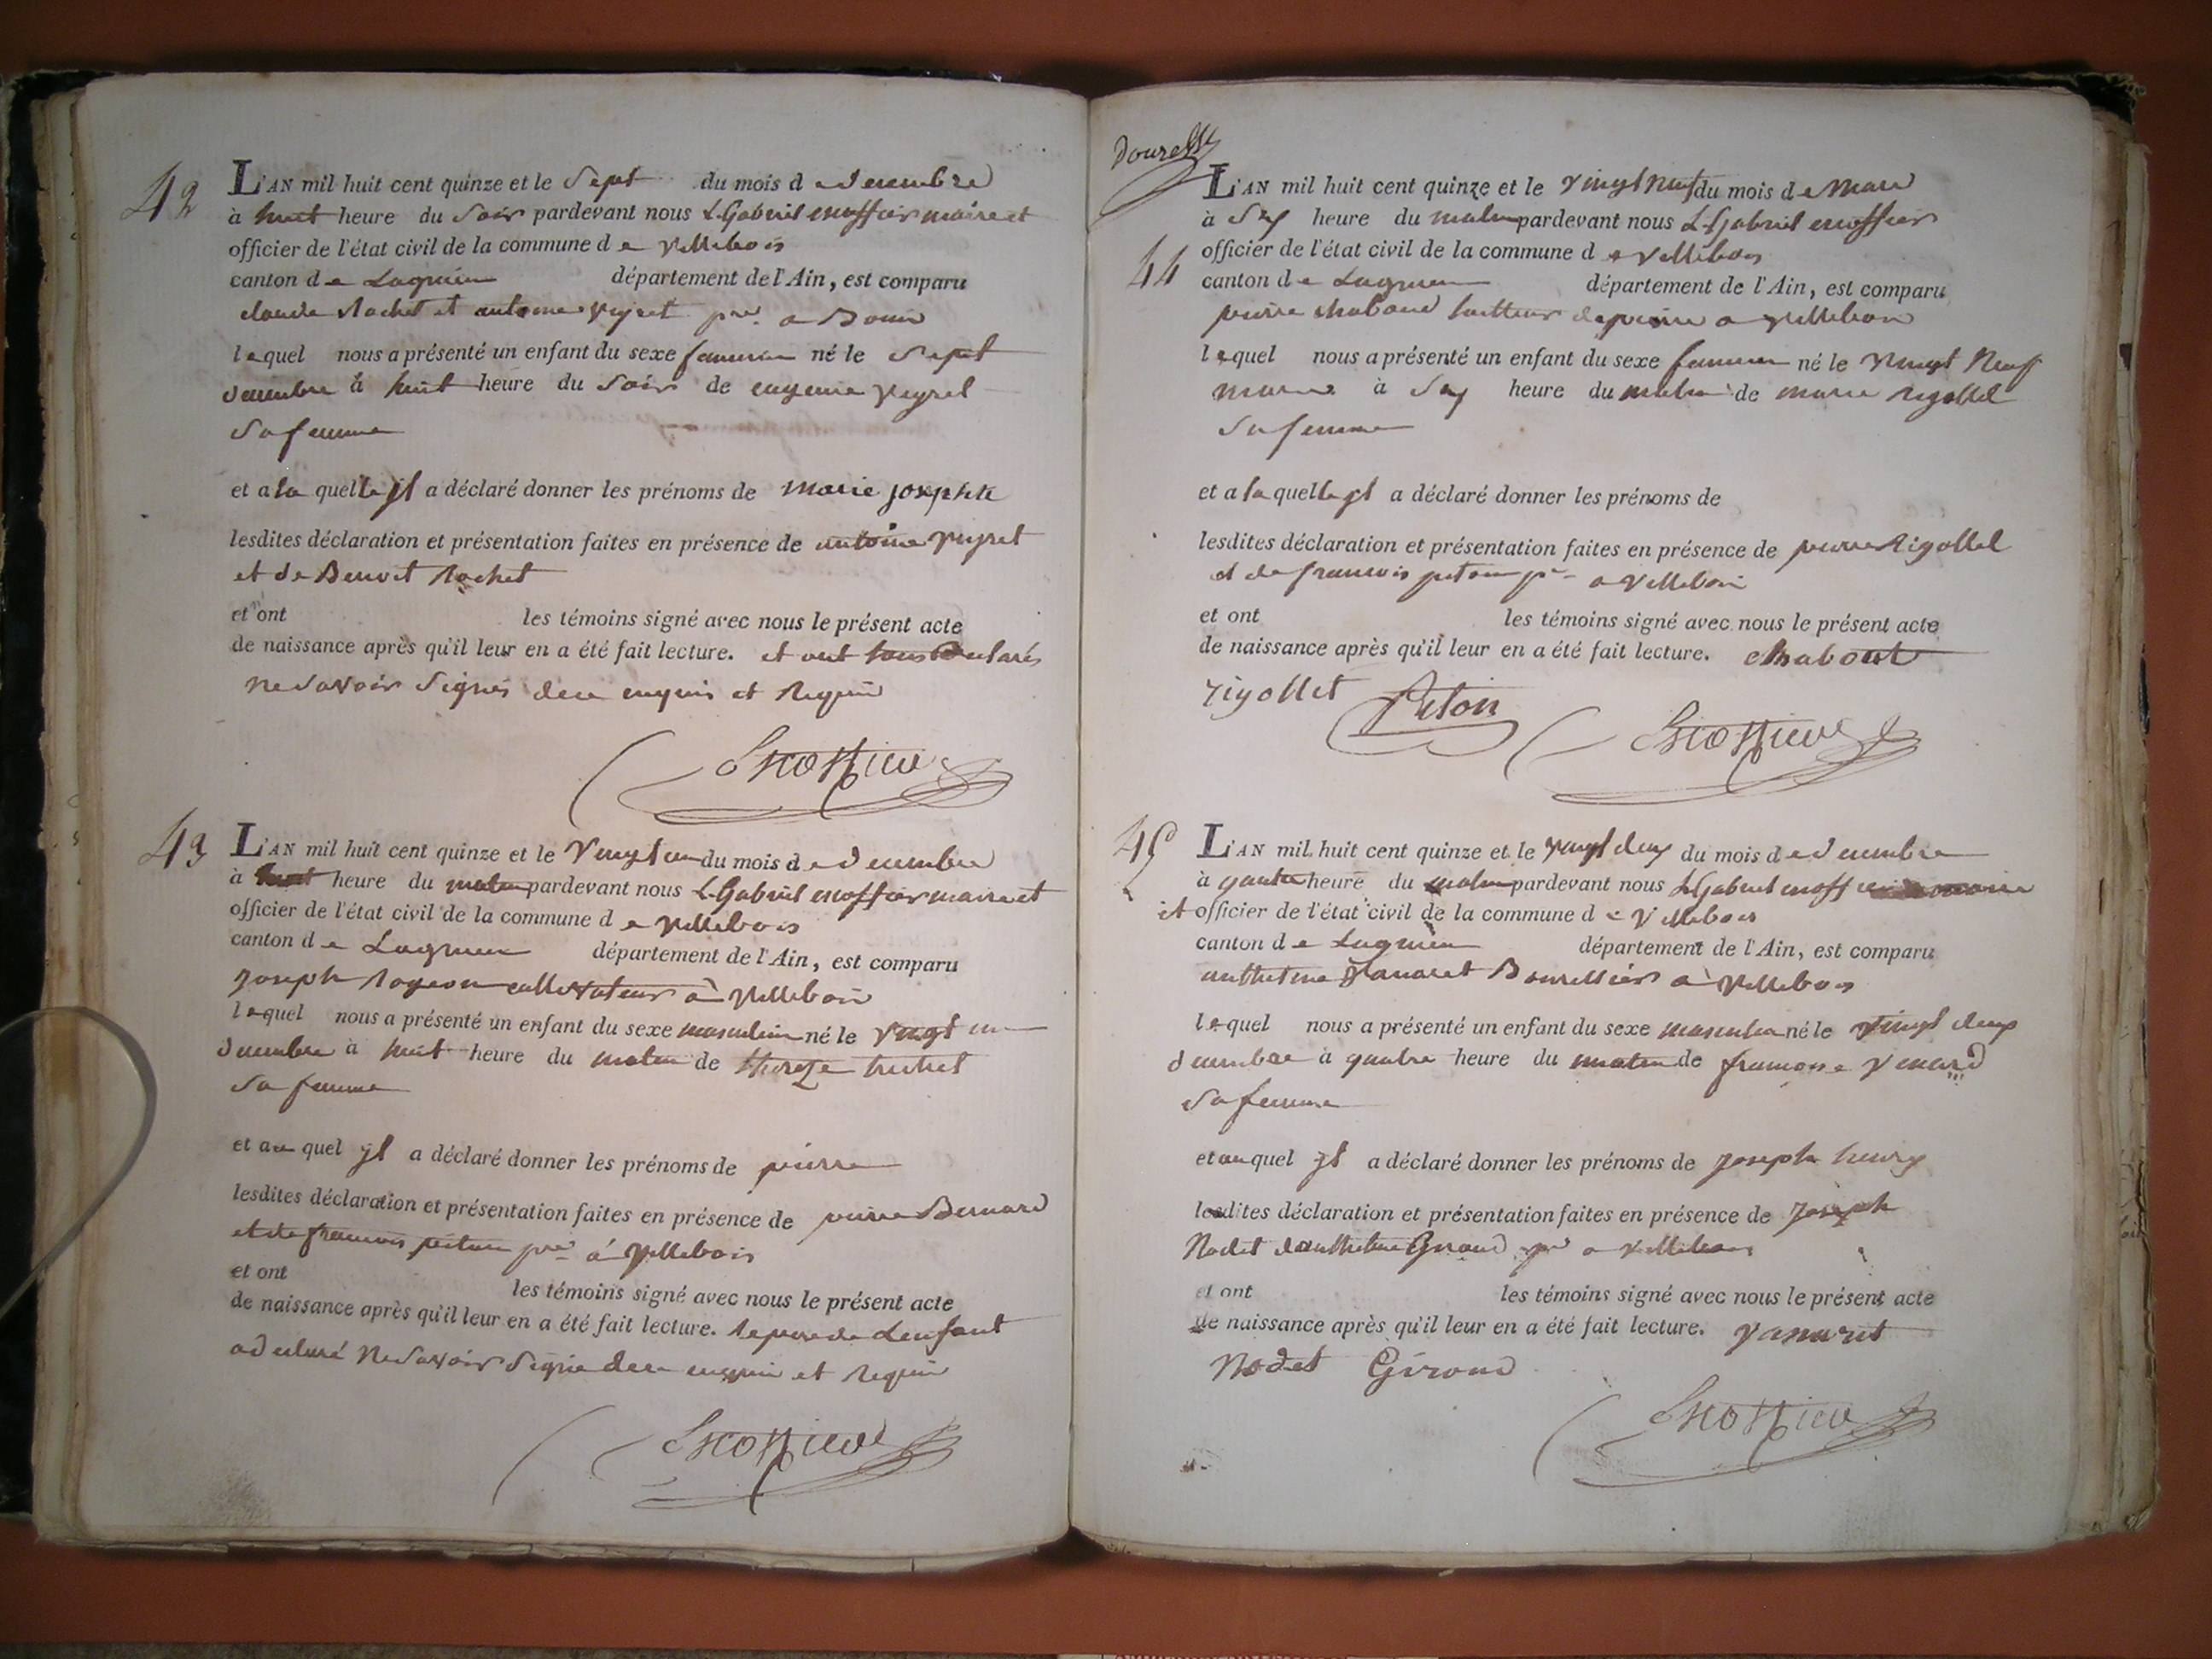 42
L'AN mil huit cent quinze et le Sept du mois de decembre
à huit heure du Soir pardevant nous L. Gabriel maire et
officier de l'état civil de la commune de Villebois
canton de Lagnieu département de l'Ain, est comparu
claude Rachet et antoine Veyret a Bouis
lequel nous a présenté un enfant du sexe feminin né le Sept
decembre à huit heure du Soir de eugenie Veyret
Sa femme
et a la quelle jl a déclaré donner les prénoms de Marie josephte
lesdites déclaration et présentation faites en présence de antoine Veyret
et de Benoit Rachet
et ont les témoins signé avec nous le présent acte
de naissance après qu'il leur en a été fait lecture. et ont tous declarés
ne Savoir Signés de ce enquis et Requis
43
L'AN mil huit cent quinze et le Vingt un du mois de decembre
à huit heure du matin pardevant nous L. Gabriel maire et
officier de l'état civil de la commune de Villebois
canton de Lagnieu département de l'Ain, est comparu
Joseph cultivateur à Villebois
lequel nous a présenté un enfant du sexe masculin né le Vingt un
decembre à huit heure du matin de therèze trichet
Sa femme
et au quel jl a déclaré donner les prénoms de pierre
lesdites déclaration et présentation faites en présence de pierre Bernard
et de francois à Villebois
et ont les témoins signé avec nous le présent acte
de naissance après qu'il leur en a été fait lecture. le pere de Lenfant
a declaré Ne Savoir Signé de ce enquis et Requis
44
L'AN mil huit cent quinze et le Vingt Neuf du mois de Mars
à Six heure du matin pardevant nous L. Gabriel
officier de l'état civil de la commune de Villebois
canton de Lagnieu département de l'Ain, est comparu
pierre chaboud tailleur de pierre a Villebois
lequel nous a présenté un enfant du sexe feminin né le Vingt Neuf
mars à Six heure du matin de marie Rigollet
Sa femme
et a la quelle jl a déclaré donner les prénoms de
lesdites déclaration et présentation faites en présence de pierre Rigollet
et de francois a Villebois
et ont les témoins signé avec nous le présent acte
de naissance après qu'il leur en a été fait lecture. chabout
rigollet
45
L'AN mil huit cent quinze et le Vingt deux du mois de decembre
à quatre heure du matin pardevant nous L. Gabriel maire
et officier de l'état civil de la commune de Villebois
canton de Lagnieu département de l'Ain, est comparu
anthelme Vanaret Bourellier à Villebois
lequel nous a présenté un enfant du sexe masculin né le Vingt deux
decembre à quatre heure du matin de francoise
Sa femme
et au quel jl a déclaré donner les prénoms de Joseph henry
lesdites déclaration et présentation faites en présence de Joseph
Nodet danthelme Giroud a Villebois
et ont les témoins signé avec nous le présent acte
de naissance après qu'il leur en a été fait lecture. Vanaret
Nodet Giroud